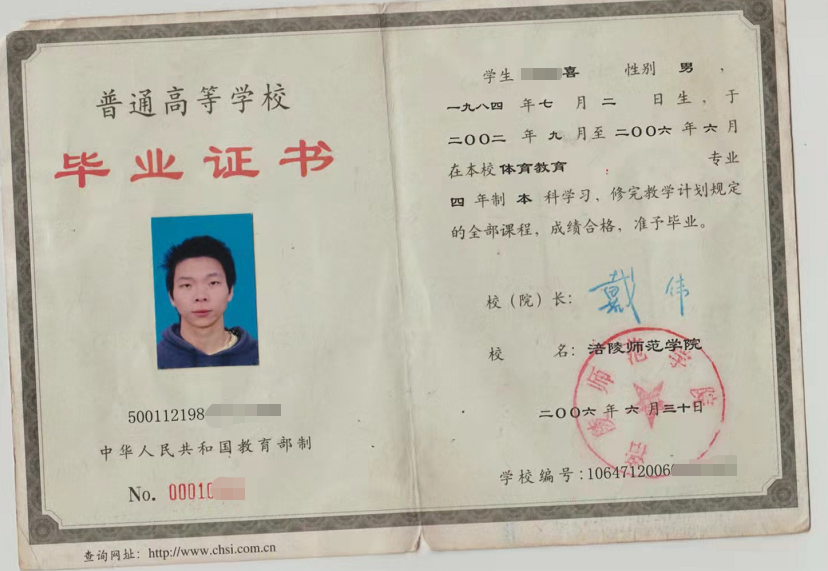 普通高等学校
毕业证书
500112198
中华人民共和国教育部制
No. 00010
查询网址：http://www.chsi.com.cn
学生 喜 性别 男，
一九八四 年 七 月 二 日生，于
二〇〇二 年 九 月至 二〇〇六 年 六 月
在本校 体育教育 专业
四 年制 本 科学习、修完教学计划规定
的全部课程，成绩合格，准予毕业。
校（院）长：戴伟
校 名：涪陵师范学院
涪陵师范学院
二〇〇六 年 六 月 三十 日
学校编号：1064712006